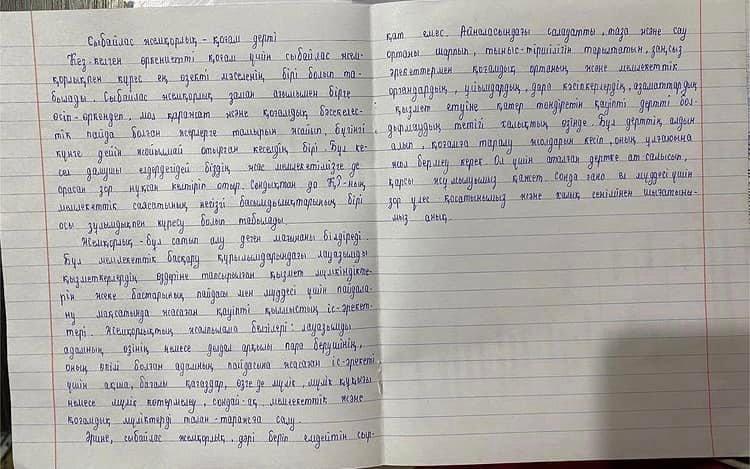 Сыбайлас жемқорлық - қоғам дерті
Кез-келген өркениетті қоғам үшін сыбайлас жем-
қорлықпен күрес ең өзекті мәселенің бірі болып та-
былады. Сыбайлас жемқорлық залан ағымымен бірге
өсіп-өркендеп, мол қаражат және қоғамдық бәсекелес-
тік пайда болған жерлерге тамырын жайып, бүгінгі
күнге дейін жойылмай отырған кеселдің бірі. Бұл ке-
сел дамушы елдердегідей біздің жас мемлекетімізге де
орасан зор нұқсан келтіріп отыр. Сондықтан да ҚР-ның
мемлекеттік саясатының негізгі басымдылықтарының бірі
осы зұлымдықпен күресу болып табылады.
Жемқорлық - бұл сатып алу деген мағынаны білдіреді.
Бұл мемлекеттік басқару құрылымдарындағы лауазымды
қызметкерлердің өздеріне тапсырылған қызмет мүмкіндікте-
рін жеке бастарының пайдасы мен мүддесі үшін пайдала-
ну мақсатында жасаған қауіпті қылмыстық іс-әрекет-
тері. Жемқорлықтың жалпылама белгілері: лауазымды
адамның өзінің немесе делдал арқылы пара берушінің,
оның өкілі болған адамның пайдасына жасаған іс-әрекеті
үшін ақша, бағалы қағаздар, өзге де мүлік, мүлік құқығы
немесе мүлік көтермелеу, сондай-ақ мемлекеттік және
қоғамдық мүліктерді талан-таражға салу.
Әрине, сыбайлас жемқорлық дәрі беріп емдейтін сыр-
қат емес. Айналасындағы салауатты, таза және сау
ортаны шарпып, тыныс-тіршілігін тарылтатын, заңсыз
әрекеттермен қоғамдық ортаның және мемлекеттік
органдардың, ұйымдардың, дара кәсіпкерлердің, азаматтардың
қызмет етуіне қатер төндіретін қауіпті дертті бол-
дырмаудың тетігі халықтың өзінде. Бұл дерттің алдын
алып, қоғамға таралу жолдарын кесіп, оның ұлғаюына
жол бермеу керек. Ол үшін аталған дертке ат салысып,
қарсы жұмылуымыз қажет. Сонда ғана ел мүддесі үшін
зор үлес қосатынымыз және халық сенімінен шығатыны-
мыз анық.